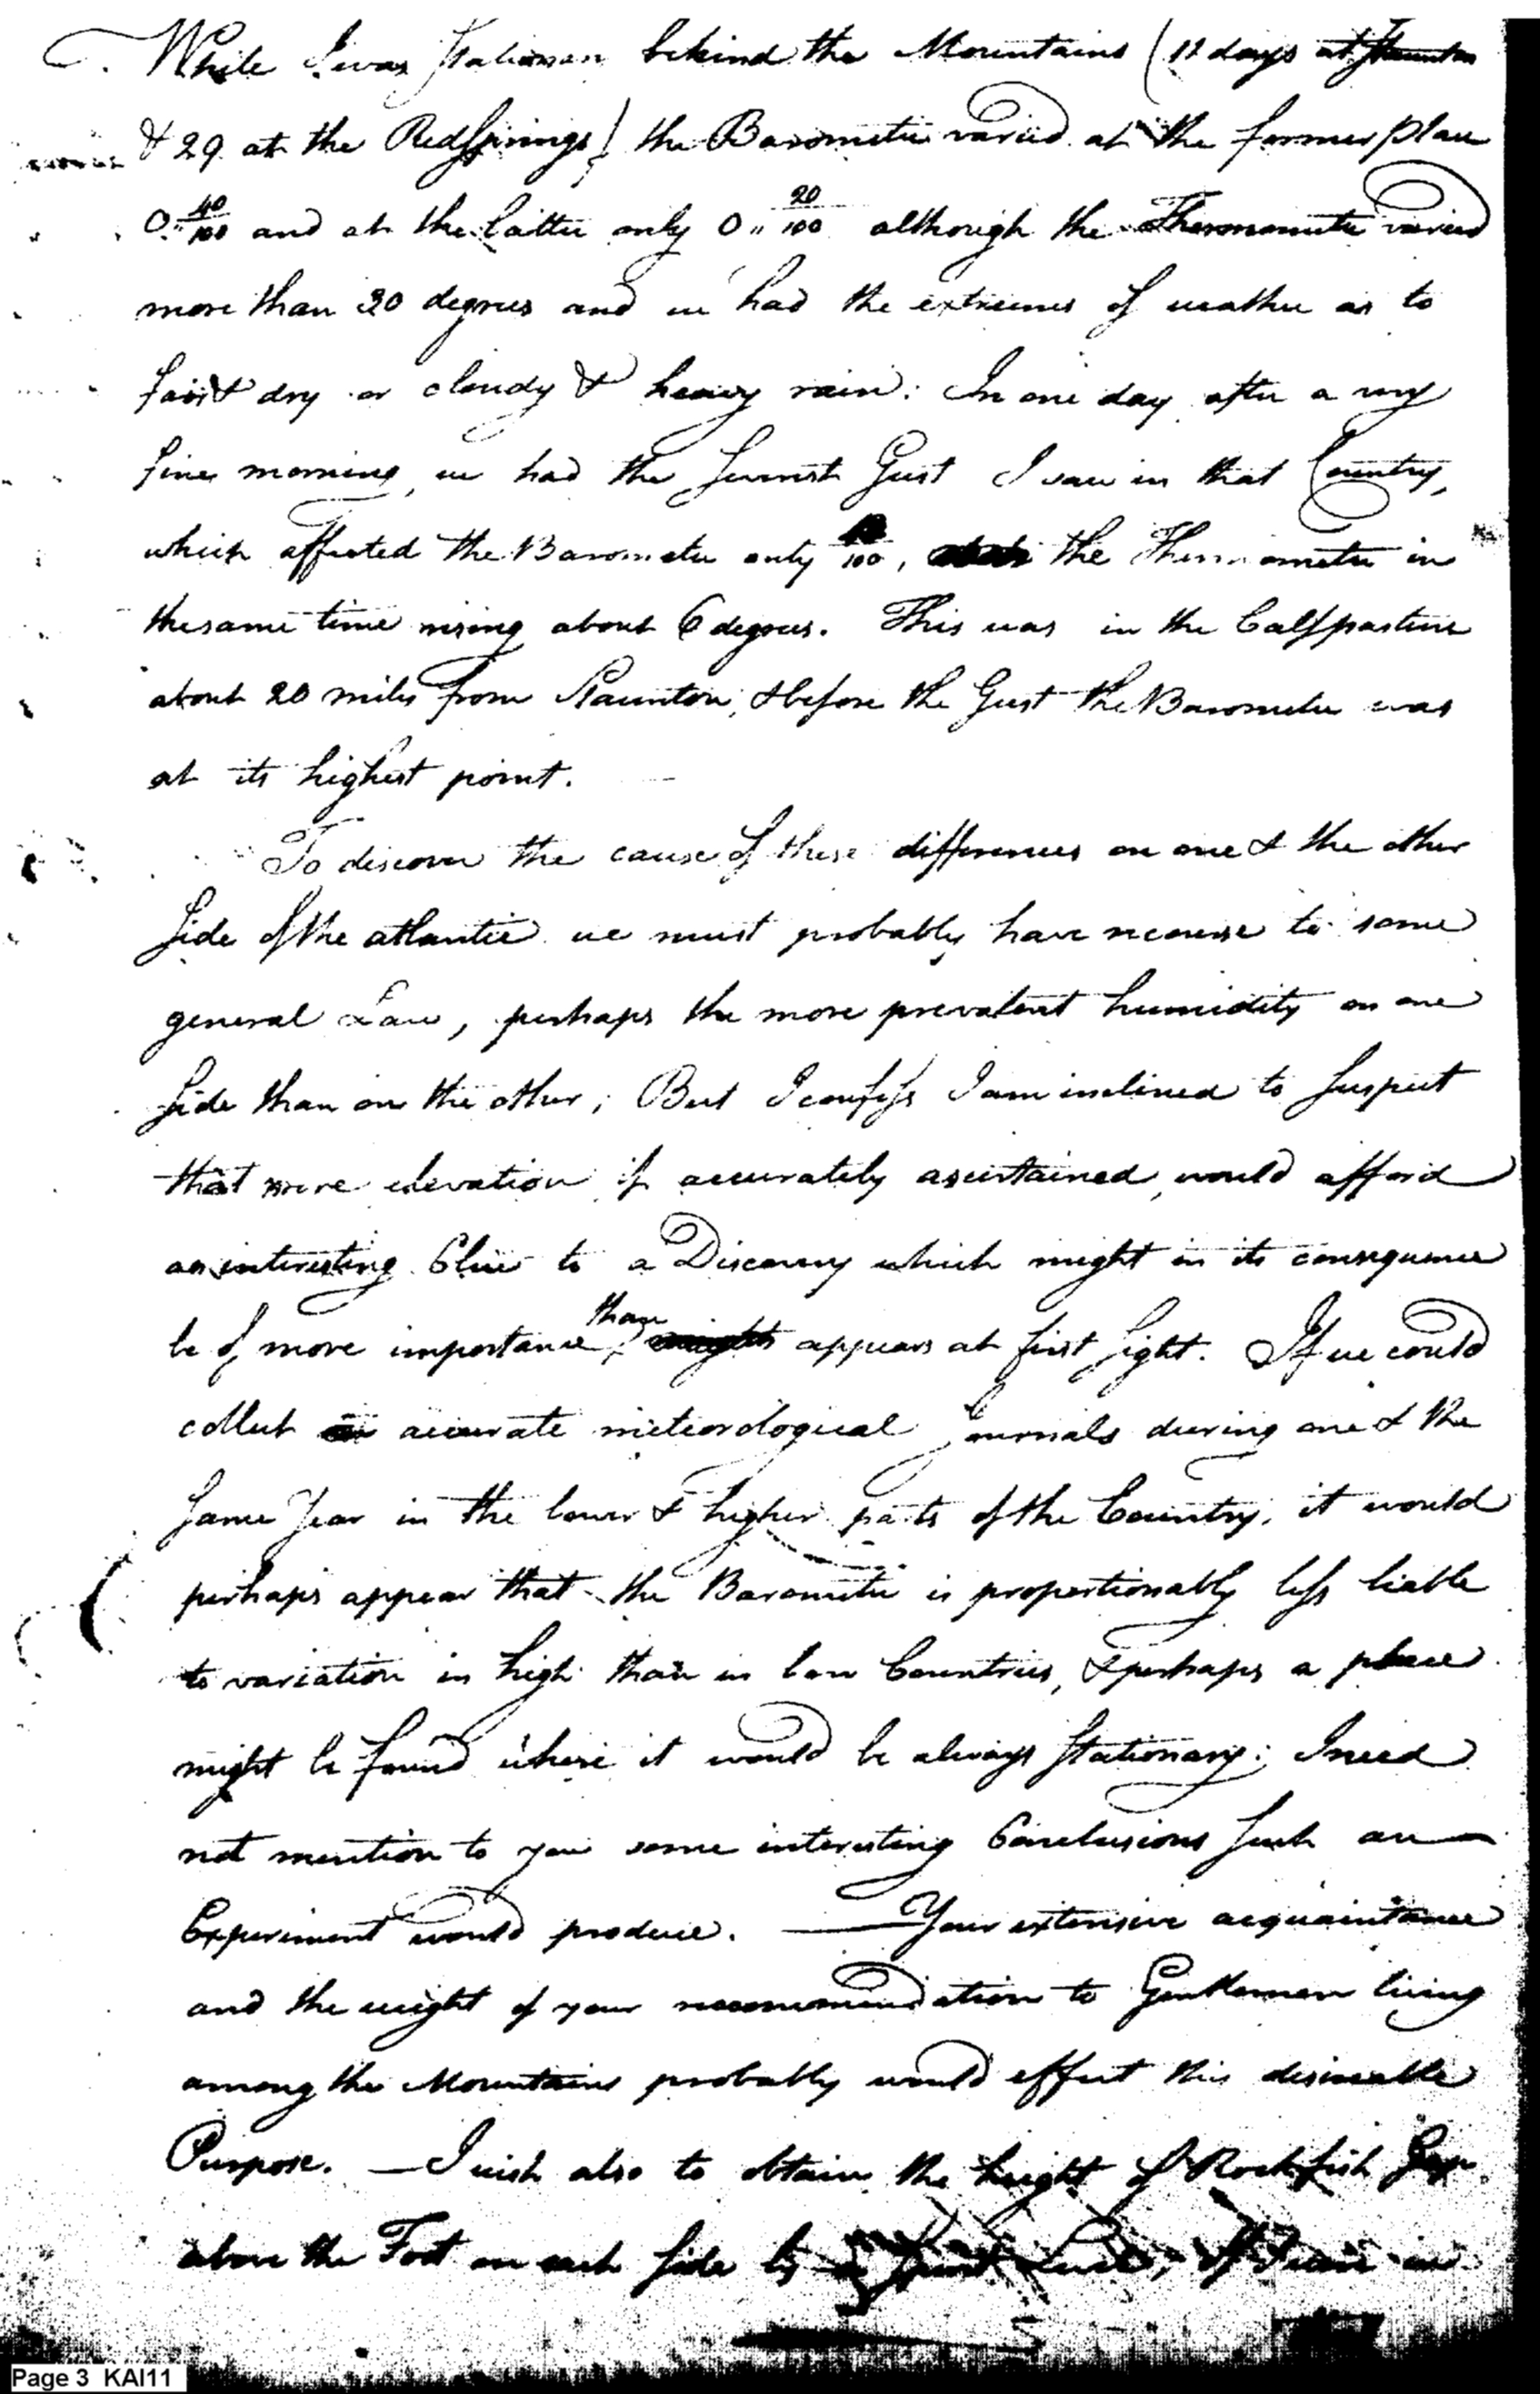 While I was Stationary behind the Mountains (11 days at Staunton
& 29 at the Red Springs) the Barometer varied at the former place
0.. 40/100 and at the latter only 0 ,, 20/100 although the Thermometer varied
more than 20 degrees and we had the extremes of weather as to
fair & dry or cloudy & heavy rain: In one day after a very
fine morning, we had the severest Gust I saw in that Country,
which affected the Barometer only /100, the Thermometer in
the same time rising about 6 degrees. This was in the Calfpasture
about 20 miles from Staunton, & before the Gust the Barometer was
at its highest point.
To discover the cause of these differences on one & the other
Side of the atlantic we must probably have recourse to some
general Law, perhaps the more prevalent humidity on one
Side than on the other; But I confess I am inclined to Suspect
that mere elevation if accurately ascertained, would afford
an interesting Clue to a Discovery which might in its consequence
be of more importance than appears at first Sight. If we could
collect accurate meteorological Journals during one & the
Same Year in the lower & higher parts of the Country, it would
perhaps appear that the Barometer is proportionably less liable
to variation in high than in low Countries, & perhaps a place
might be found where it would be always Stationary; I need
not mention to you some interesting Conclusions Such an
Experiment would produce. — Your extensive acquaintance
and the weight of your recommendation to Gentlemen living
among the Mountains probably would effect this desireable
Purpose. — I wish also to obtain the height of Rockfish Gap
above the Foot on each Side by a Spirit Level, of
Page 3 KAI11